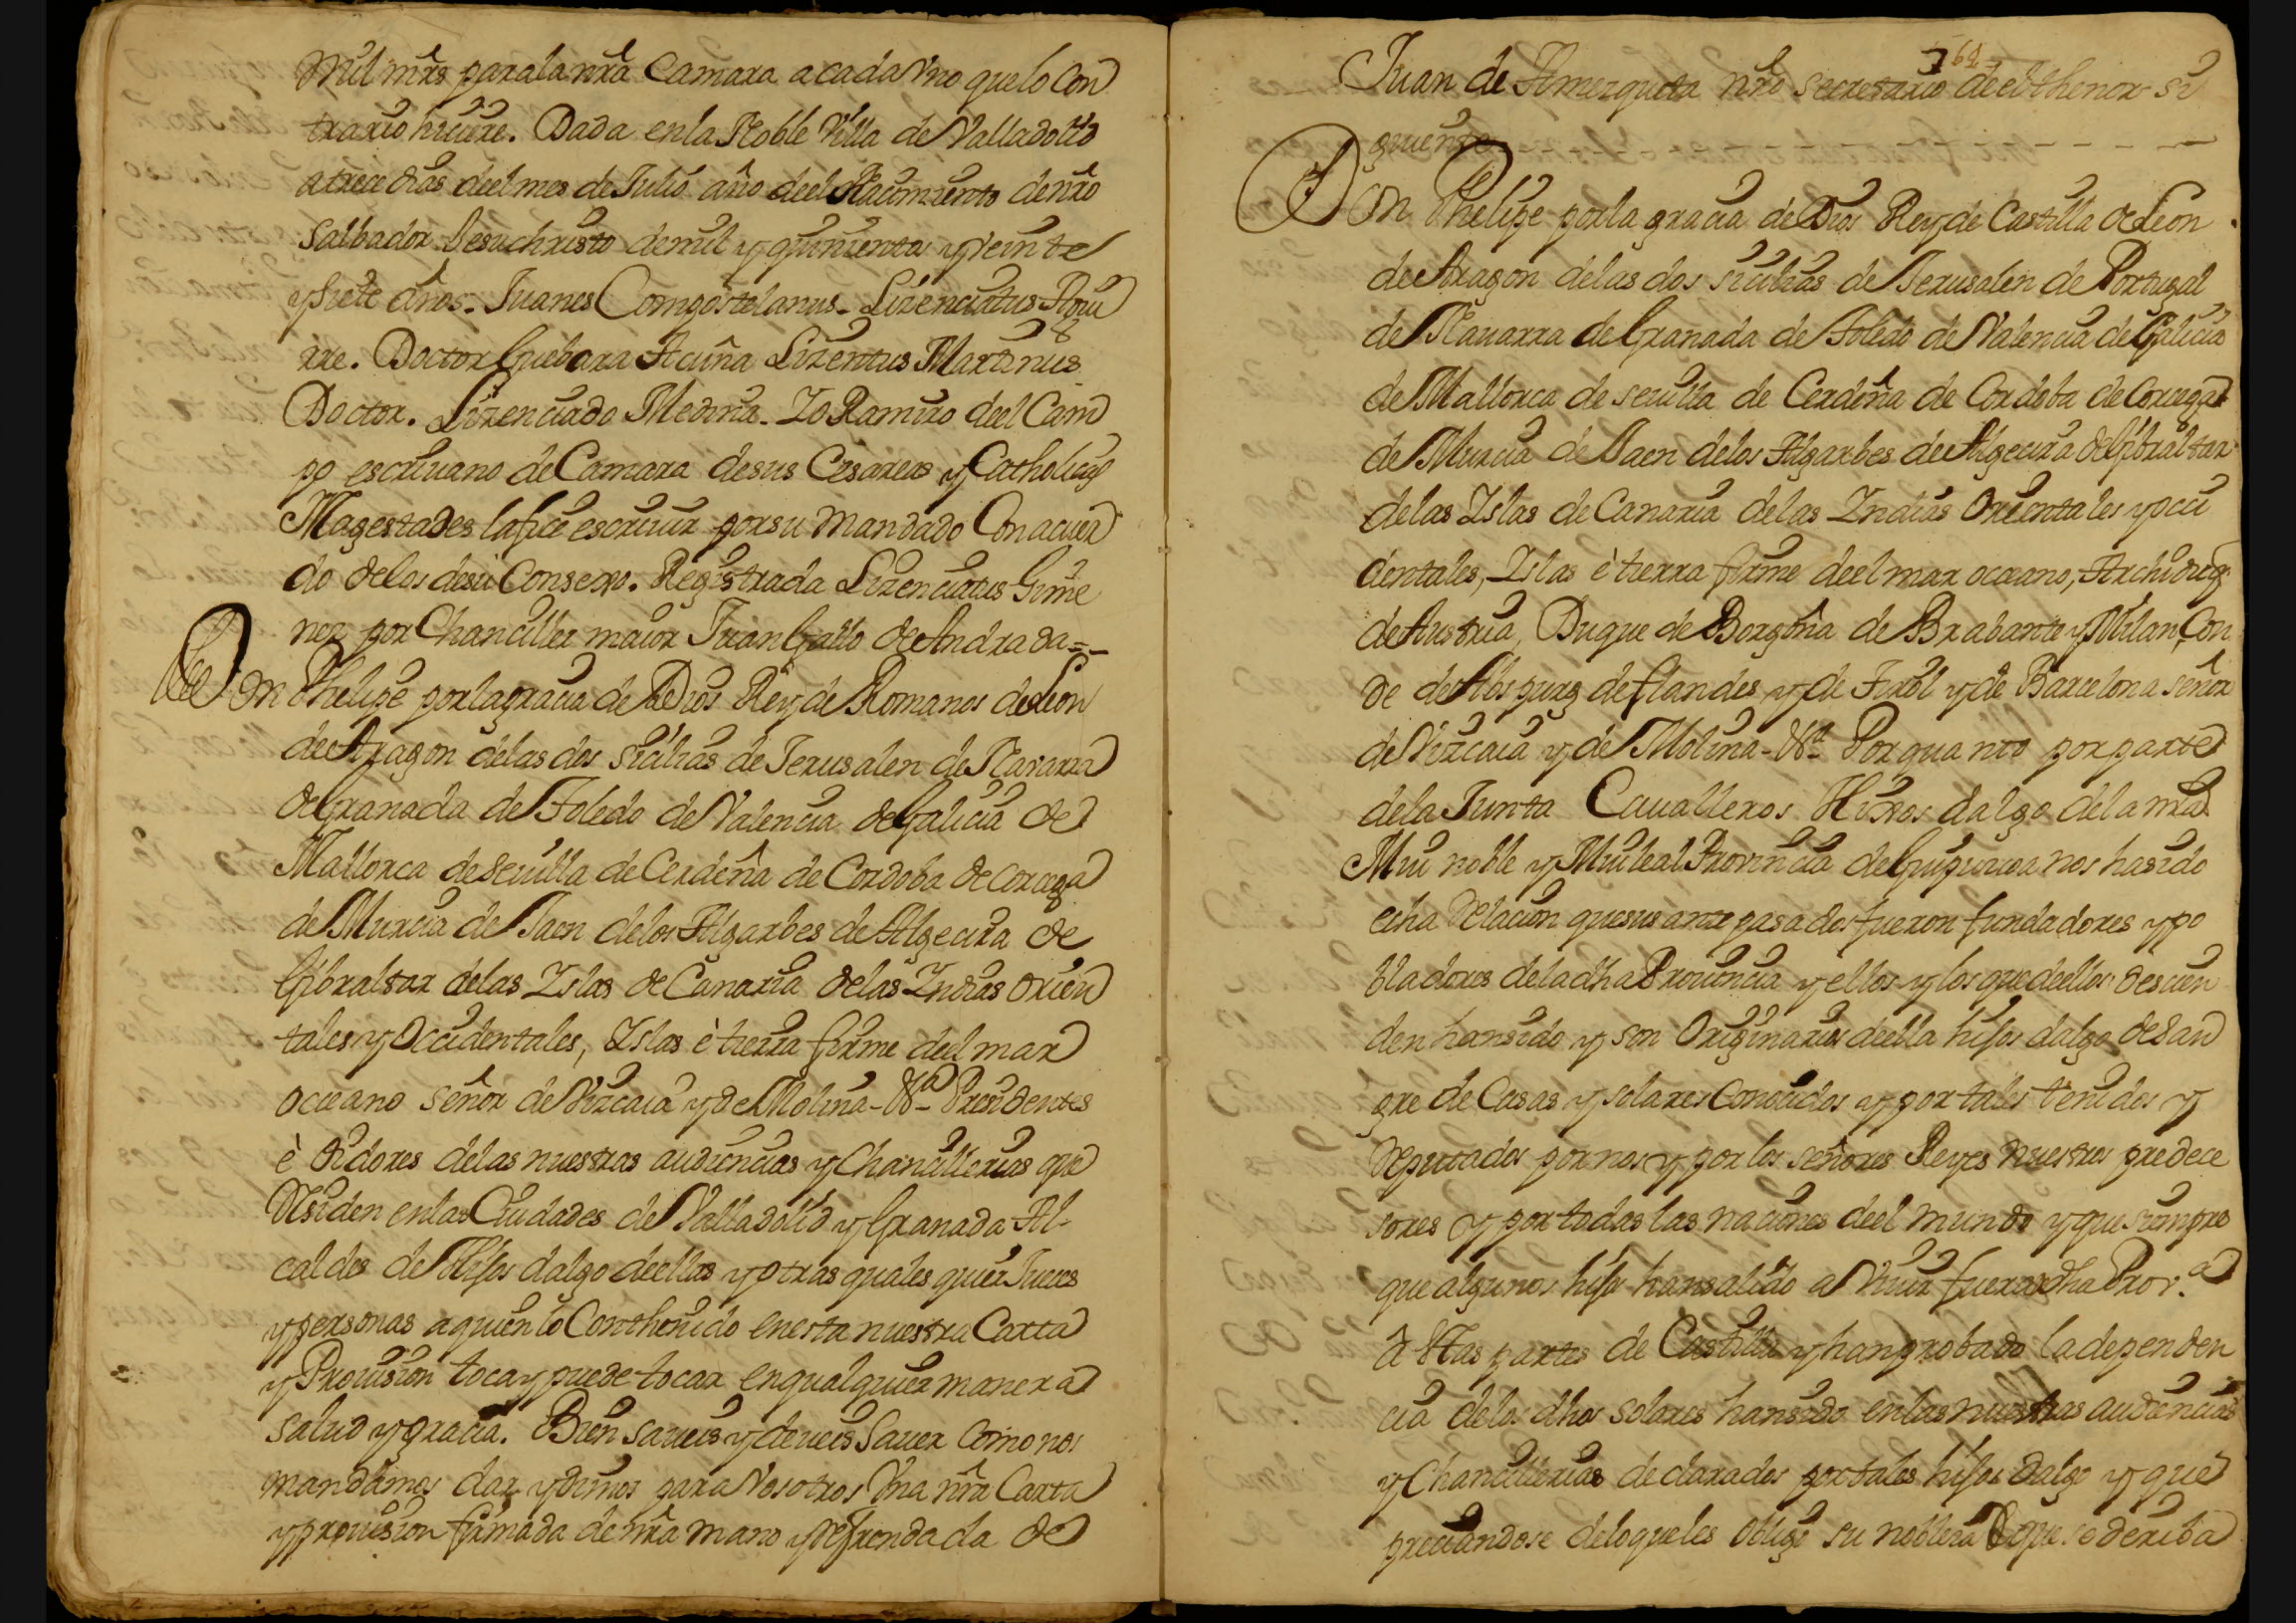 mil mrs para la nrã Camara a cada Vno que lo Con
trario hiciere. Dada en la Noble Villa de Valladolid
a trece dias deel mes de Julio año deel Nacimiento de nrõ
Salbador Jesuchristo de mil y quinientos y veinte
y siete años. Juanes Compostelanus. Lizenciatus Agui
rre. Doctor Guebara Acuña Lizentus Martinus
Doctor. Lizenciado Medina. Yo Ramiro deel Cam
po escriuano de Camara de sus Cesareas y Catholicas
Magestades la fice escriuir por su mandado Con acuer
do de los de su Consejo. Registrada Lizenciatus Gime
nez por Chanciller maior Juan Gallo de Andrada=
Don Phelipe por la gracia de Dios Rey de Romanos de Leon
de Aragon de las dos Sicilias de Jerusalen de Nauarra
de Granada de Toledo de Valencia de Galicia de
Mallorca de Seuilla de Cerdeña de Cordoba de Corcega
de Murcia de Jaen de los Algarbes de Algecira de
Gibraltar de las Yslas de Canaria de las Yndias Orien
tales y Occidentales, Yslas è tierra firme deel mar
occeano señor de Vizcaia y de Molina - &a. Presidentes
è Oidores de las nuestras audiencias y Chancillerias que
Residen en las Ciudades de Valladolid y Granada Al-
caldes de Hijos dalgo deellas y otras quales quier Jueces
y personas a quien lo Conthenido en esta nuestra Carta
y Prouision toca y puede tocar en qualquier manera
salud y gracia. Bien saueis y deueis Sauer Como nos
mandamos dar y dimos para Vosotros Vna nrã Carta
y prouision firmada de nrã mano y Refrendada de
764
Juan de Amezqueta nrõ secretario de el thenor si
guiente
Don Phelipe por la gracia de Dios Rey de Castilla de Leon
de Aragon de las dos sicilias de Jerusalen de Portugal
de Nauarra de Granada de Toledo de Valencia de Galicia
de Mallorca de seuilla de Cerdeña de Cordoba de Corcega
de Murcia de Jaen de los Algarbes de Algecira de Gibraltar
de las Yslas de Canaria de las Yndias Orientales y occi
dentales, Yslas è tierra firme deel mar occeano, Archiduq.
de Austria, Duque de Borgoña de Brabante y Milan, Con
de de Abspurg de flandes y de Tirol y de Barcelona señor
de Vizcaia y de Molina - &a. Por quanto por parte
de la Junta Caualleros Hixos dalgo de la nrã
Mui noble y Mui leal Prouincia de Guipuzcoa nos ha sido
echa Relacion que sus antepasados fueron fundadores y po
bladores de la dha Prouincia y ellos y los que deellos descien
den han sido y son Originarios deella hijos dalgo de san
gre de Casas y solares Conocidos y por tales tenidos y
Reputados por nos y por los señores Reyes nuestros predece
sores y por todas las naciones deel mundo y que siempre
que algunos hijos han salido a Viuir fuera dha Prov.a
â otras partes de Castilla y han probado la dependen
cia de los dhos solares han sido en las nuestras audiencias
y Chancillerias declarados por tales hijos dalgo y que
preciandose de lo que les obliga su nobleza que se deriba